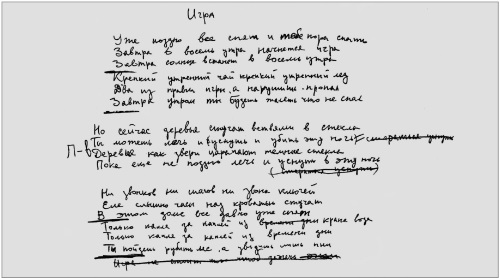 Игра
Уже поздно все спят и тебе пора спать
Завтра в восемь утра начнется игра
Завтра солнце встанет в восемь утра
Крепкий утренний чай крепкий утренний лед
Два из правил игры, а нарушишь пропал
Завтра утром ты будешь жалеть что не спал
Но сейчас деревья стучат ветвями в стекла
П-в Ты можешь лечь и уснуть и убить эту ночь
Деревья как звери царапают темные стекла
Пока еще не поздно лечь и уснуть в эту ночь
(смертью уснуть)
Ни звонков ни шагов ни звона ключей
Еле слышно часы над кроватью стучат
В этом доме все давно уже спят
Только капля за каплей из крана вода
Только капля за каплей из времени дни
Ты пойдешь рубить лес, а увидишь лишь пни
Игра